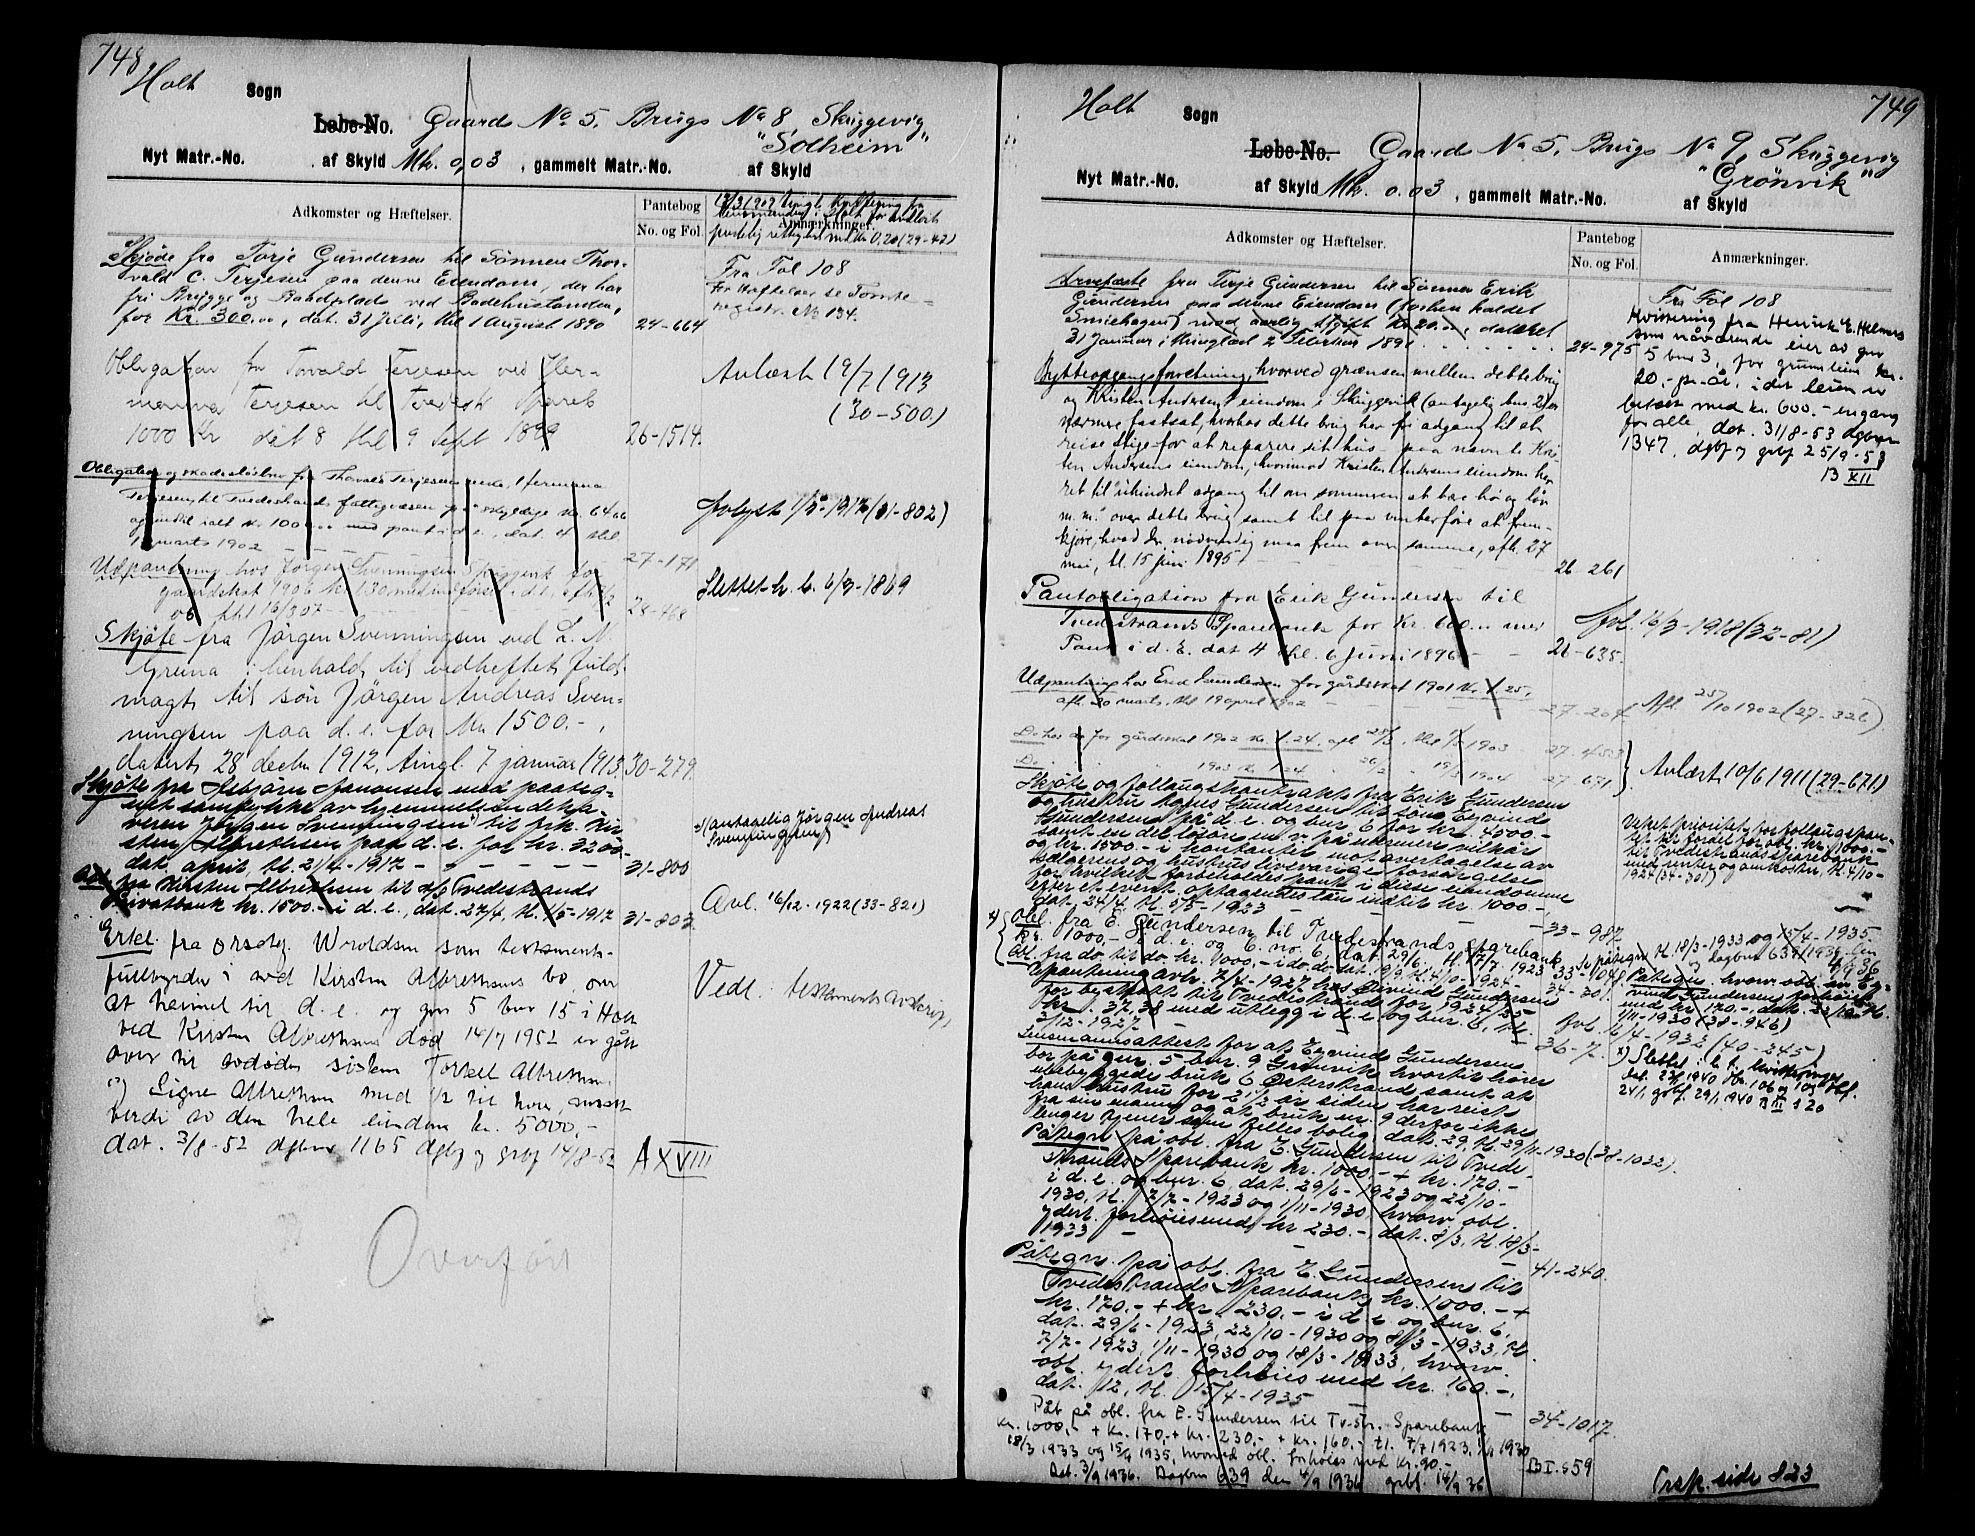 748
Holt Sogn
Løbe-No. Gaards No 5, Brugs No 8 Skuggevig
"Solheim"
Nyt Matr.-No. af Skyld Mk. 0,03, gammelt Matr.-No. af Skyld
Adkomster og Hæftelser.
Pantebog
No. og Fol.
Anmærkninger.
Skjøde fra Terje Gundersen til Sønnen Thor-
vald C. Terjesen paa denne Eiendom, der har
fri Brygge og Baadplads ved
for Kr. 300.00, dat. 31 Juli, thl 1 August 1890 24-664
Fra Fol 108
For Hæftelser se
registr. No 134.
Obligation fra Torvald Terjesen ved Her-
mann Terjesen til Tvedestr. Spareb
1000 Kr dat 8 thl 9 Sept 1899 26-1514.
Avlæst 19/7 1913
(30-500)
Obligation og skadesløsbrev fra Thorvald Terjesen ved Hermann
Terjesen til Tvedestrands fattigvæsen
med pant i d. e., dat. 4 thl
marts 1902 27-171
Udpantning hos Jørgen Svenningsen
og thl 16/3 07 28-468
Slettet h. t. 6/3-1869
Skjøte fra Jørgen Svenningsen ved L. N.
Grenna i henhold til vedheftet fuld-
magt til søn Jørgen Andreas Sven-
ningsen paa d. e. for Kr 1500.-,
datert 28 decbr 1912, tingl. 7 januar 1913. 30-279.
Skjøte fra Asbjørn Jonansen med paateg-
net samtykke av hjemmelsindeha-
veren Jørgen Svenningsen x) til frk. Kir-
sten Albrethsen paa d. e. for kr. 3200.-
dat. april, tl. 21/4-1917 31-800
x) (antagelig Jørgen Andreas
Svenningsen)
Obl. fra Kirsten Albrethsen til A/S Tvedestrands
Privatbank kr. 1500.- i d. e., dat. 27/4, tl. 1/5-1917 31-803.
Avl. 16/12-1922 (33-821)
Erkl. fra orsdtg. Wroldsen som testaments-
fullbyrder i avd Kirsten Albrethsens bo, om
at hemmel til d. e. og gnr 5 bnr 15 i Holt
ved Kirsten Albrethsens død 14/7 1952 er gått
over til avdødes søsken Torkel Albrethsen
og Signe Albrethsen med 1/2 til hver,
verdi av den hele eiendom kr. 5000,-
dat. 2/8-52 dagbnr 1165 dgbf og grbf 14/8-52 A XVIII
Vedl. testaments utskrift
Overført
749
Holt Sogn
Løbe-No. Gaards No 5, Brugs No 9, Skuggevig
"Grönvik"
Nyt Matr.-No. af Skyld Mk. 0.03, gammelt Matr.-No. af Skyld
Adkomster og Hæftelser.
Pantebog
No. og Fol.
Anmærkninger.
Arvefæste fra Terje Gundersen til Sønnen Erik
Gundersen paa denne Eiendom (forhen kaldet
Smiehagen) mod aarlig Afgift Kr 20.00, dateret
31 Januar, thinglæst 2 Februar 1891 24-975
Fra Fol 108
Kvittering fra Henrik E. Helmers
som nåværende eier av gnr
5 bnr 3, for grunnleie kr.
20,- pr. år, idet leien er
betalt med kr. 600.- engang
for alle, dat. 31/8-53 dagbnr
1347, dgbf og grbf 25/9-53
B XII
Skytteopgangsforretning, hvorved grænsen mellem dette brug
og Kristen Andersens eiendom i Skuggevik (antagelig bnr. 2) er
nærmere fastsat, hvorhos dette brug har fri adgang til at
reise stige for at reparere sit hus paa nævnte Kri-
sten Andersens eiendom, hvorimod Kristen Andersens eiendom har
ret til uhindret adgang til om sommeren at bære hø og løv
m. m. over dette brug samt til paa vinterføre at frem-
kjøre, hvad der nødvendig maa frem over samme, afh. 27
mai, tl. 15 juni 1895 26-261
Pantobligation fra Erik Gundersen til
Tvedestrands Sparebank for Kr. 600.00 med
Pant i d. E. dat 4 thl. 6 Juni 1896 26-635.
Avl. 16/3-1918 (32-81)
Udpantning hos Erik Gundersen for gårdsskat 1901 Kr. 1.25,
afh. 20 marts, thl 19 april 1902 27-204
Afl. 25/10 1902 (27-326)
Do hos do for gårdsskat 1902 kr. 1.24, afh. thl 1903 27-453
Do 1903 kr. 1.24 1904 27-671
Avlæst 10/6 1911 (29-671)
Skjøte og føllaugskontrakt fra Erik Gundersen
og hustru Agnes Gundersen til søn Eyvind
Gundersen på d. e. og bnr. 6 for kr. 4000.-
samt en del løsøre m. v. på nærmere vilkår
og kr. 1500.- i kontanter mot overtagelse av
sælgerens og hustrus livsvarige forsørgelse
for hvilket forbeholdes pant i disse eiendomme
efter et event. optagendes lån indtil kr. 1000.-,
dat. 24/4, tl. 5/5-1923 33-987
Viket prioritet for føllaugspan-
tet til fordel for obl. kr. 1000.-
til Tvedestrands Sparebank
med renter og omkostn., tl. 4/10-
1924 (34-301)
x) Obl. fra E. Gundersen til Tvedestrands Sparebank
kr. 1000.- i d. e. og b. no. 6, dat. 29/6. tl. 7/7 1923 33-1048
Obl. fra do til do kr. 1000.- i do, do, dat. 19/9, tl. 4/10-1924 34-301
Utpantning avh. 7/4-1927 hos Eyvind Gundersen
for byskatt til Tvedestrand for 1924/25
kr. 37,38 med utlegg i d. e. og bnr. 6, tl.
3/12-1927 36-7.
Avl. 6/4-1932 (40-245)
Se påtegn. tl. 18/3-1933 og 15/4-1935.
Påtegn. hvorv. obl. fra Ey-
vind Gundersen forhøies
med kr. 170.-, dat. 22/10, tl.
1/11-1930 (38-946)
x) Slettet i h. t. kvitteringer
24/1 grbf. 29/1 1940 B III s 20
Lensmannsattest for at Eyvind Gundersen
bor på gnr. 5 bnr. 9 Grønvik hvortil hører
ubebyggede bruk 6 Østerstrand samt at
hans hustru for 2 1/2 år siden har reist
fra sin mann og at bruk nr. 9 derfor ikke
lenger tjener som felles bolig, dat. 29, tl. 29/11-1930 (38-1032).
Påtegn. på obl. fra E. Gundersen til Tvede-
strands Sparebank kr. 1000.- + kr. 170.-
i d. e. og bnr. 6, dat. 29/6-1923 og 22/10-
1930, tl. 7/7-1923 og 1/11-1930, hvorv. obl.
yderl. forhøies med kr 230.-, dat. 8/3, tl. 18/3-
1933 41-240.
Påtegn. på obl. fra E. Gundersen til
Tvedestrands Sparebank kr. 1000.- +
kr. 170.- + kr. 230.- i d. e og bnr. 6,
dat. 29/6-1923, 22/10-1930 og 8/3-1933, tl.
7/7-1923, 1/11-1930 og 18/3-1933, hvorv.
obl. yderl. forhøies med kr. 160.-,
dat. /12, tl. 15/4-1935 34-1017.
Påt på obl. fra E. Gundersen til Tv.str. Sparebank
kr. 1000,- + kr. 170,- + kr. 230,- + kr. 160,- tl. 7/7 1923, 1/11 1930
18/3 1933 og 15/4 1935, hvorved obl. forhøies med kr. 90.-
Dat. 3/9 1936. Dagbnr 639 den 4/9 1936 grbf. 14/9 36 B I. s 59
Forsk. side 823